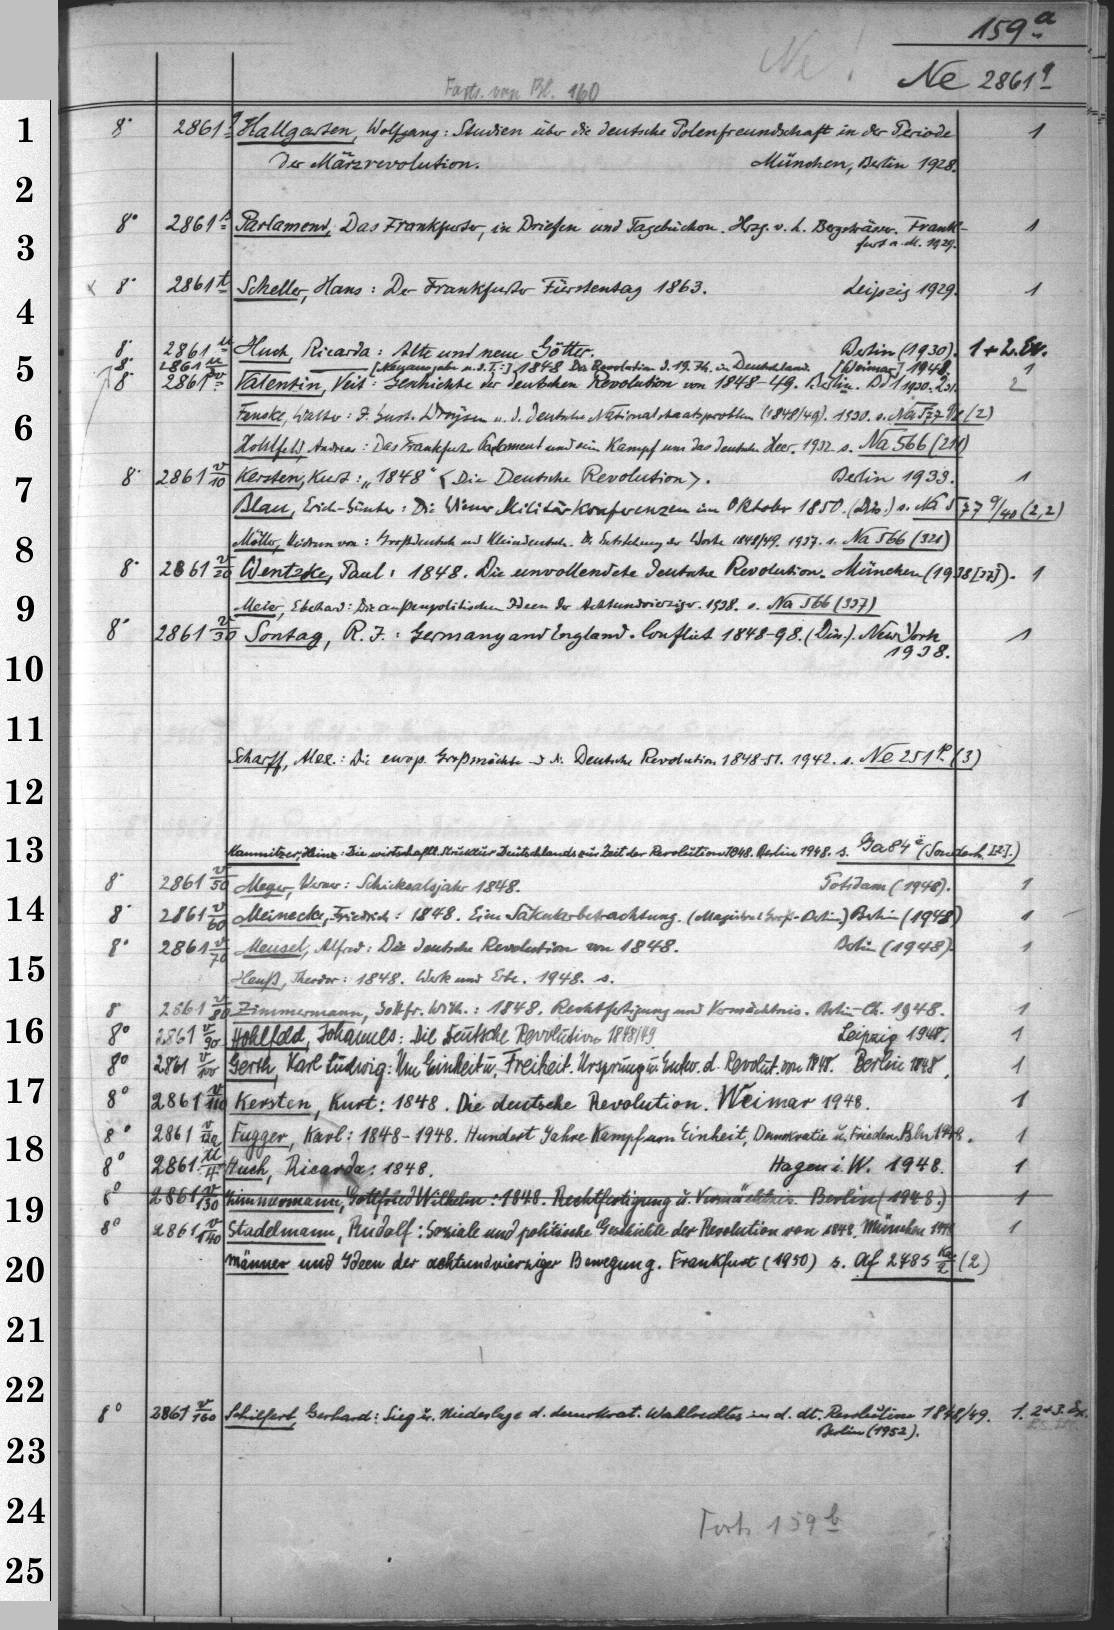 159a
Ne!
Ne 2861q
Forts. von Bl. 160
1
8° 2861q Hallgarten, Wolfgang: Studien über die deutsche Polenfreundschaft in der Periode 1
der Märzrevolution. München, Berlin 1928.
2
8° 2861s Parlament, Das Frankfurter, in Briefen und Tagebüchern. Hrsg. v. L. Bergsträsser. Frank- 1
furt a. M. 1929.
3
x 8° 2861t Scheller, Hans: Der Frankfurter Fürstentag 1863. Leipzig 1929. 1
4
8° 2861u Huch, Ricarda: Alte und neue Götter. Berlin (1930). 1 + 2. Ex.
8° 2861 [Neuausgabe u. d. T.:] 1848 Die Revolution d. 19. Jh. in Deutschland. [Weimar] 1948. 1
5
8° 2861v Valentin, Veit: Geschichte der deutschen Revolution von 1848-49. Berlin. Bd 1 1930. 2 31. 2
Fenske, Walter: J. Gust. Droysen u. d. deutsche Nationalstaatsproblem (1848/49). 1930. s. Na 577 (2)
6
Hohlfeld, Andreas: Das Frankfurter Parlament und sein Kampf um das deutsche Heer. 1932 s. Na 566 (211)
8° 2861 v/10 Kersten, Kurt: „1848“ <Die Deutsche Revolution>. Berlin 1933. 1
7
Blau, Erich-Günter: Die Wiener Militärkonferenzen im Oktober 1850. (Diss.) s. Na 577 g/40 (2,2)
Möller, von: Großdeutsch und Kleindeutsch. D. Entstehung der Worte 1848/49. 1937. s. Na 566 (321)
8
8° 2861 v/20 Wentzcke, Paul: 1848. Die unvollendete deutsche Revolution. München (1938 [37]). 1
Meier, Eberhard: Die außenpolitischen Ideen der Achtundvierziger. 1938. s. Na 566 (337)
9
8° 2861 v/30 Sontag, R. J.: Germany and England. Conflict 1848-98. (Diss.) New York 1
1938.
10
11
Scharff, Alex.: Die europ. Großmächte u. d. Deutsche Revolution 1848-51. 1942. s. Ne 251 (3)
12
13
Kamnitzer, Heinz: Die wirtschaftl. Struktur Deutschlands zur Zeit der Revolution 1848. Berlin 1948. s. Ga 84 (Sonderh. [2].)
8° 2861 v/50 Meyer, Werner: Schicksalsjahr 1848. Potsdam (1948). 1
14
8° 2861 v/60 Meinecke, Friedrich: 1848. Eine Säkularbetrachtung. (Magistrat Groß-Berlin.) Berlin (1948) 1
8° 2861 v/70 Meusel, Alfred: Die deutsche Revolution von 1848. Berlin (1948) 1
15
Heuß, Theodor: 1848. Werk und Erbe. 1948. s.
8° 2861 v/80 Zimmermann, Gottfr. Wilh.: 1848. Rechtfertigung und Vermächtnis. Berlin-Ch. 1948. 1
16
8° 2861 v/90 Hohlfeld, Johannes: Die deutsche Revolution 1848/49 Leipzig 1948. 1
8° 2861 v/100 Gerth, Karl Ludwig: Um Einheit u. Freiheit. Ursprung u. Entw. d. Revolut. von 1848. Berlin 1948. 1
17
8° 2861 v/110 Kersten, Kurt: 1848. Die deutsche Revolution. Weimar 1948. 1
8° 2861 v/120 Fugger, Karl: 1848-1948. Hundert Jahre Kampf um Einheit, Demokratie u. Frieden. Bln 1948. 1
18
8° 2861 u/4 Huch, Ricarda: 1848. Hagen i. W. 1948. 1
8° 2861 v/130 Zimmermann, Gottfried Wilhelm: 1848. Rechtfertigung u. Vermächtnis. Berlin (1948.) 1
19
8° 2861 v/140 Stadelmann, Rudolf: Soziale und politische Geschichte der Revolution von 1848. München 1948 1
Männer und Ideen der achtundvierziger Bewegung. Frankfurt (1950) s. Af 2485 (2)
20
21
22
8° 2861 v/160 Schilfert, Gerhard: Sieg u. Niederlage d. demokrat. Wahlrechtes in d. dt. Revolution 1848/49. 1. 2+3. Ex.
Berlin (1952).
23
24
Forts. 159b
25